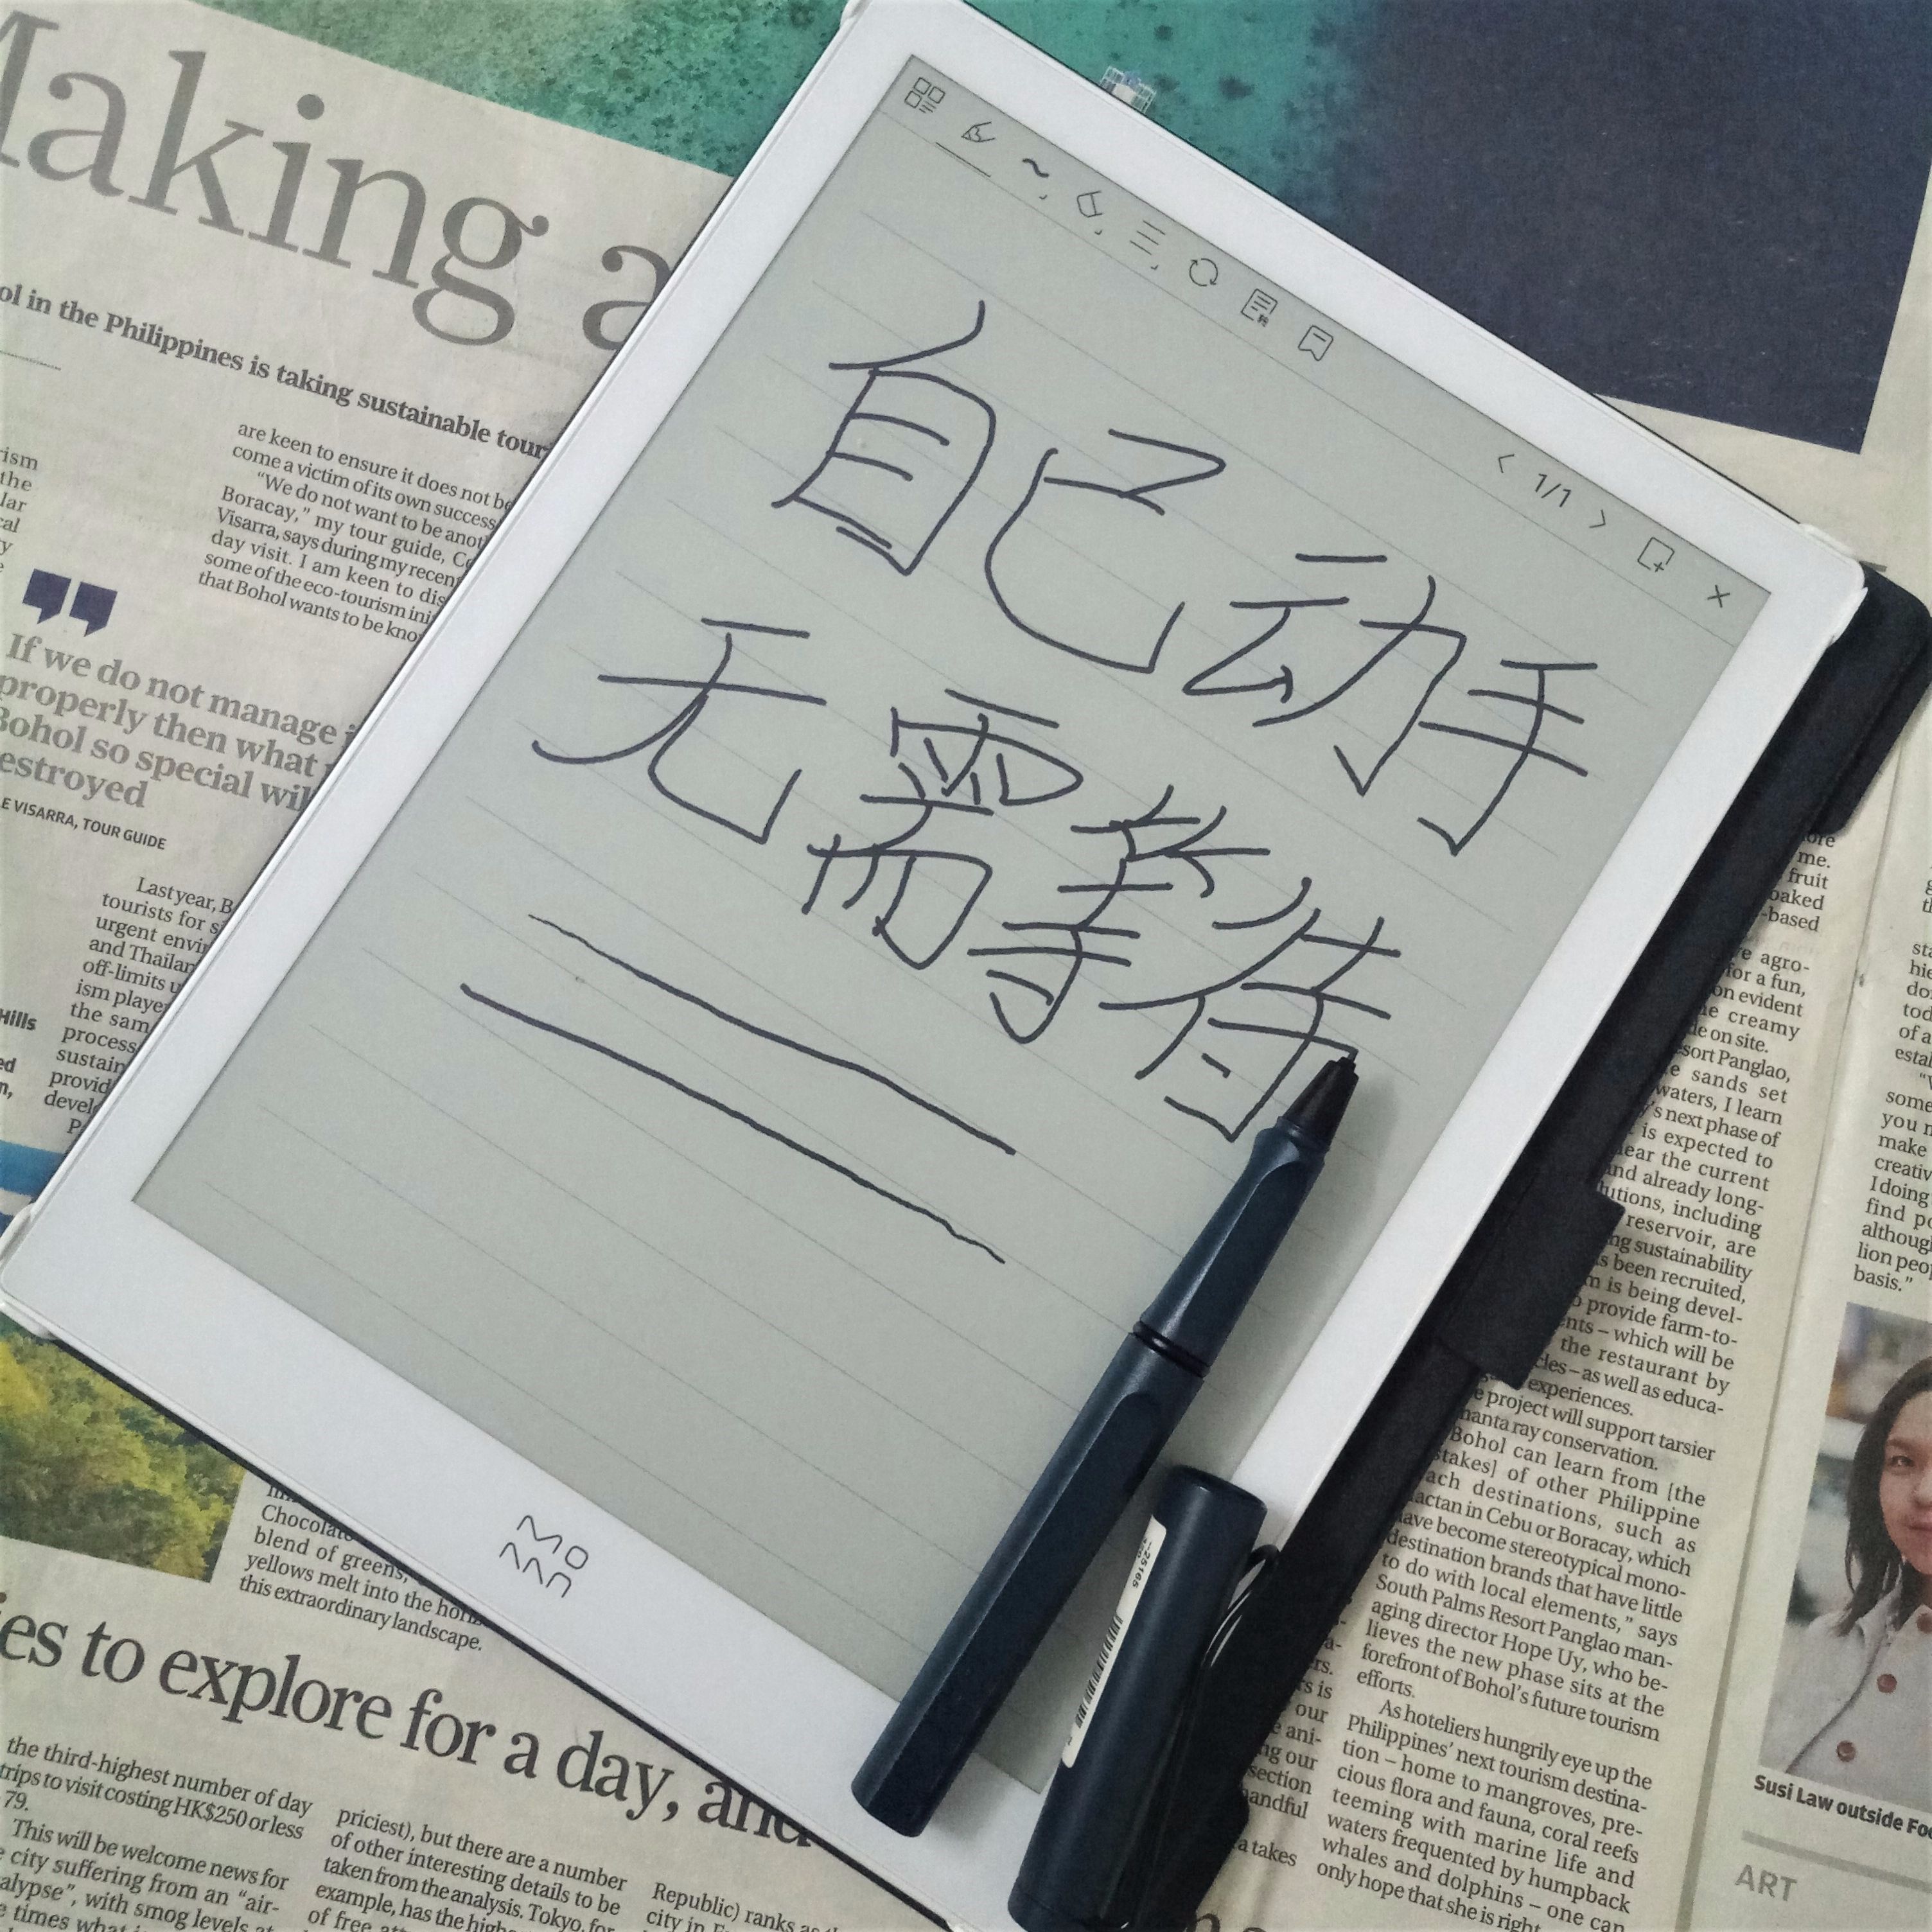 Making a
ol in the Philippines is taking sustainable tour
are keen to ensure it does not be
come a victim of its own success
“We do not want to be anot
Boracay,” my tour guide, Co
Visarra, says during my recent
day visit. I am keen to dis
some of the eco-tourism ini
that Bohol wants to be know
ism
the
lar
cal
If we do not manage i
properly then what
Bohol so special wil
estroyed
E VISARRA, TOUR GUIDE
Last year, B
tourists for s
urgent envir
and Thailan
off-limits u
ism player
the sam
process
sustain
provid
devel
P
Hills
ed
n,
1/1
自己动手
无需等待
Chocolate
blend of greens,
yellows melt into the hori
this extraordinary landscape.
es to explore for a day, and
the third-highest number of day
trips to visit costing HK$250 or less
79.
This will be welcome news for
city suffering from an “air-
alypse”, with smog levels at
times what
priciest), but there are a number
of other interesting details to be
taken from the analysis. Tokyo, for
example, has the highe
of free
Republic) ranks as th
city in E
ore
me.
fruit
baked
-based
agro-
for a fun,
on evident
creamy
on site.
sort Panglao,
sands set
waters, I learn
's next phase of
is expected to
near the current
and already long-
tutions, including
reservoir, are
ng sustainability
s been recruited,
m is being devel-
o provide farm-to-
ents – which will be
the restaurant by
cles – as well as educa-
experiences.
e project will support tarsier
manta ray conservation.
Bohol can learn from [the
stakes] of other Philippine
ach destinations, such as
actan in Cebu or Boracay, which
ave become stereotypical mono-
destination brands that have little
to do with local elements,” says
South Palms Resort Panglao man-
aging director Hope Uy, who be-
lieves the new phase sits at the
forefront of Bohol’s future tourism
efforts.
As hoteliers hungrily eye up the
Philippines’ next tourism destina-
tion – home to mangroves, pre-
cious flora and fauna, coral reefs
teeming with marine life and
waters frequented by humpback
whales and dolphins – one can
only hope that she is right.
some
you n
make
creativ
I doing
find po
although
lion peop
basis.”
Susi Law outside Foo
ART